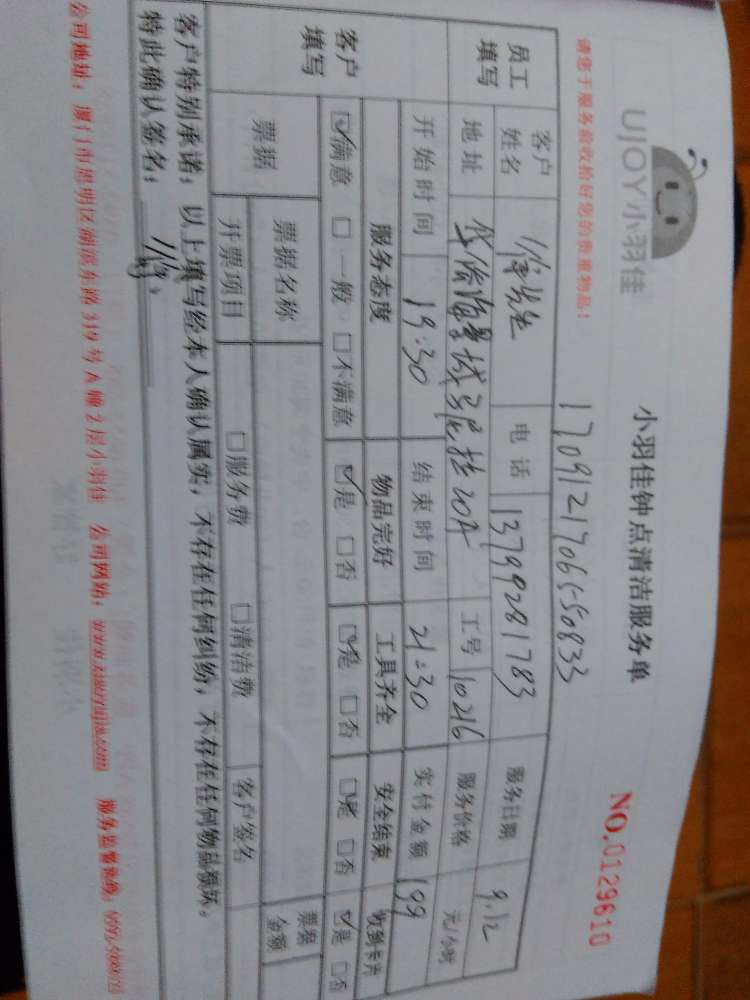 UJOY小羽佳
小羽佳钟点清洁服务单
NO.0129610
请您于服务前收拾好您的贵重物品!
17091217065550833
员工填写
客户姓名 先生 电话 13799281783 服务日期 9.12
地址 华侨海景城 20A 工号 10216 服务价格 元/小时
开始时间 19:30 结束时间 21:30 实付金额 199
客户填写
服务态度 物品完好 工具齐全 安全结束 收到卡片
☑满意 □一般 □不满意 ☑是 □否 ☑是 □否 ☑是 □否 ☑是 □否
票据 票据名称 票据金额
开票项目 □服务费 □清洁费 客户签名
客户特别承诺:以上填写经本人确认属实,不存在任何纠纷,不存在任何物品损坏。
特此确认签名:
公司地址:厦门市思明区湖滨东路319号A幢2层小羽佳 公司网站:www.xiaoyujia.com 服务监督热线: